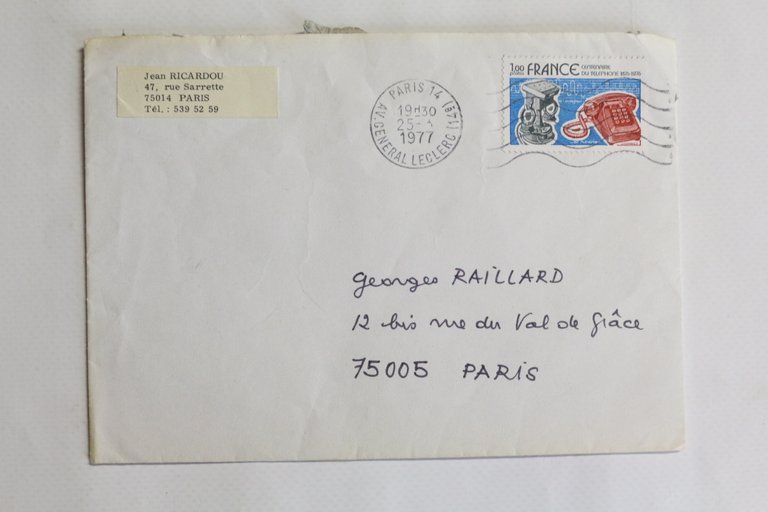 Jean RICARDOU
47, rue Sarrette
75014 PARIS
Tél. : 539 52 59
PARIS 14 (14E)
19H30
25
1977
AV. GENERAL LECLERC
1,00 FRANCE
POSTES
CENTENAIRE
DU TELEPHONE 1876-1976
Georges RAILLARD
12 bis rue du Val de Grâce
75005 PARIS